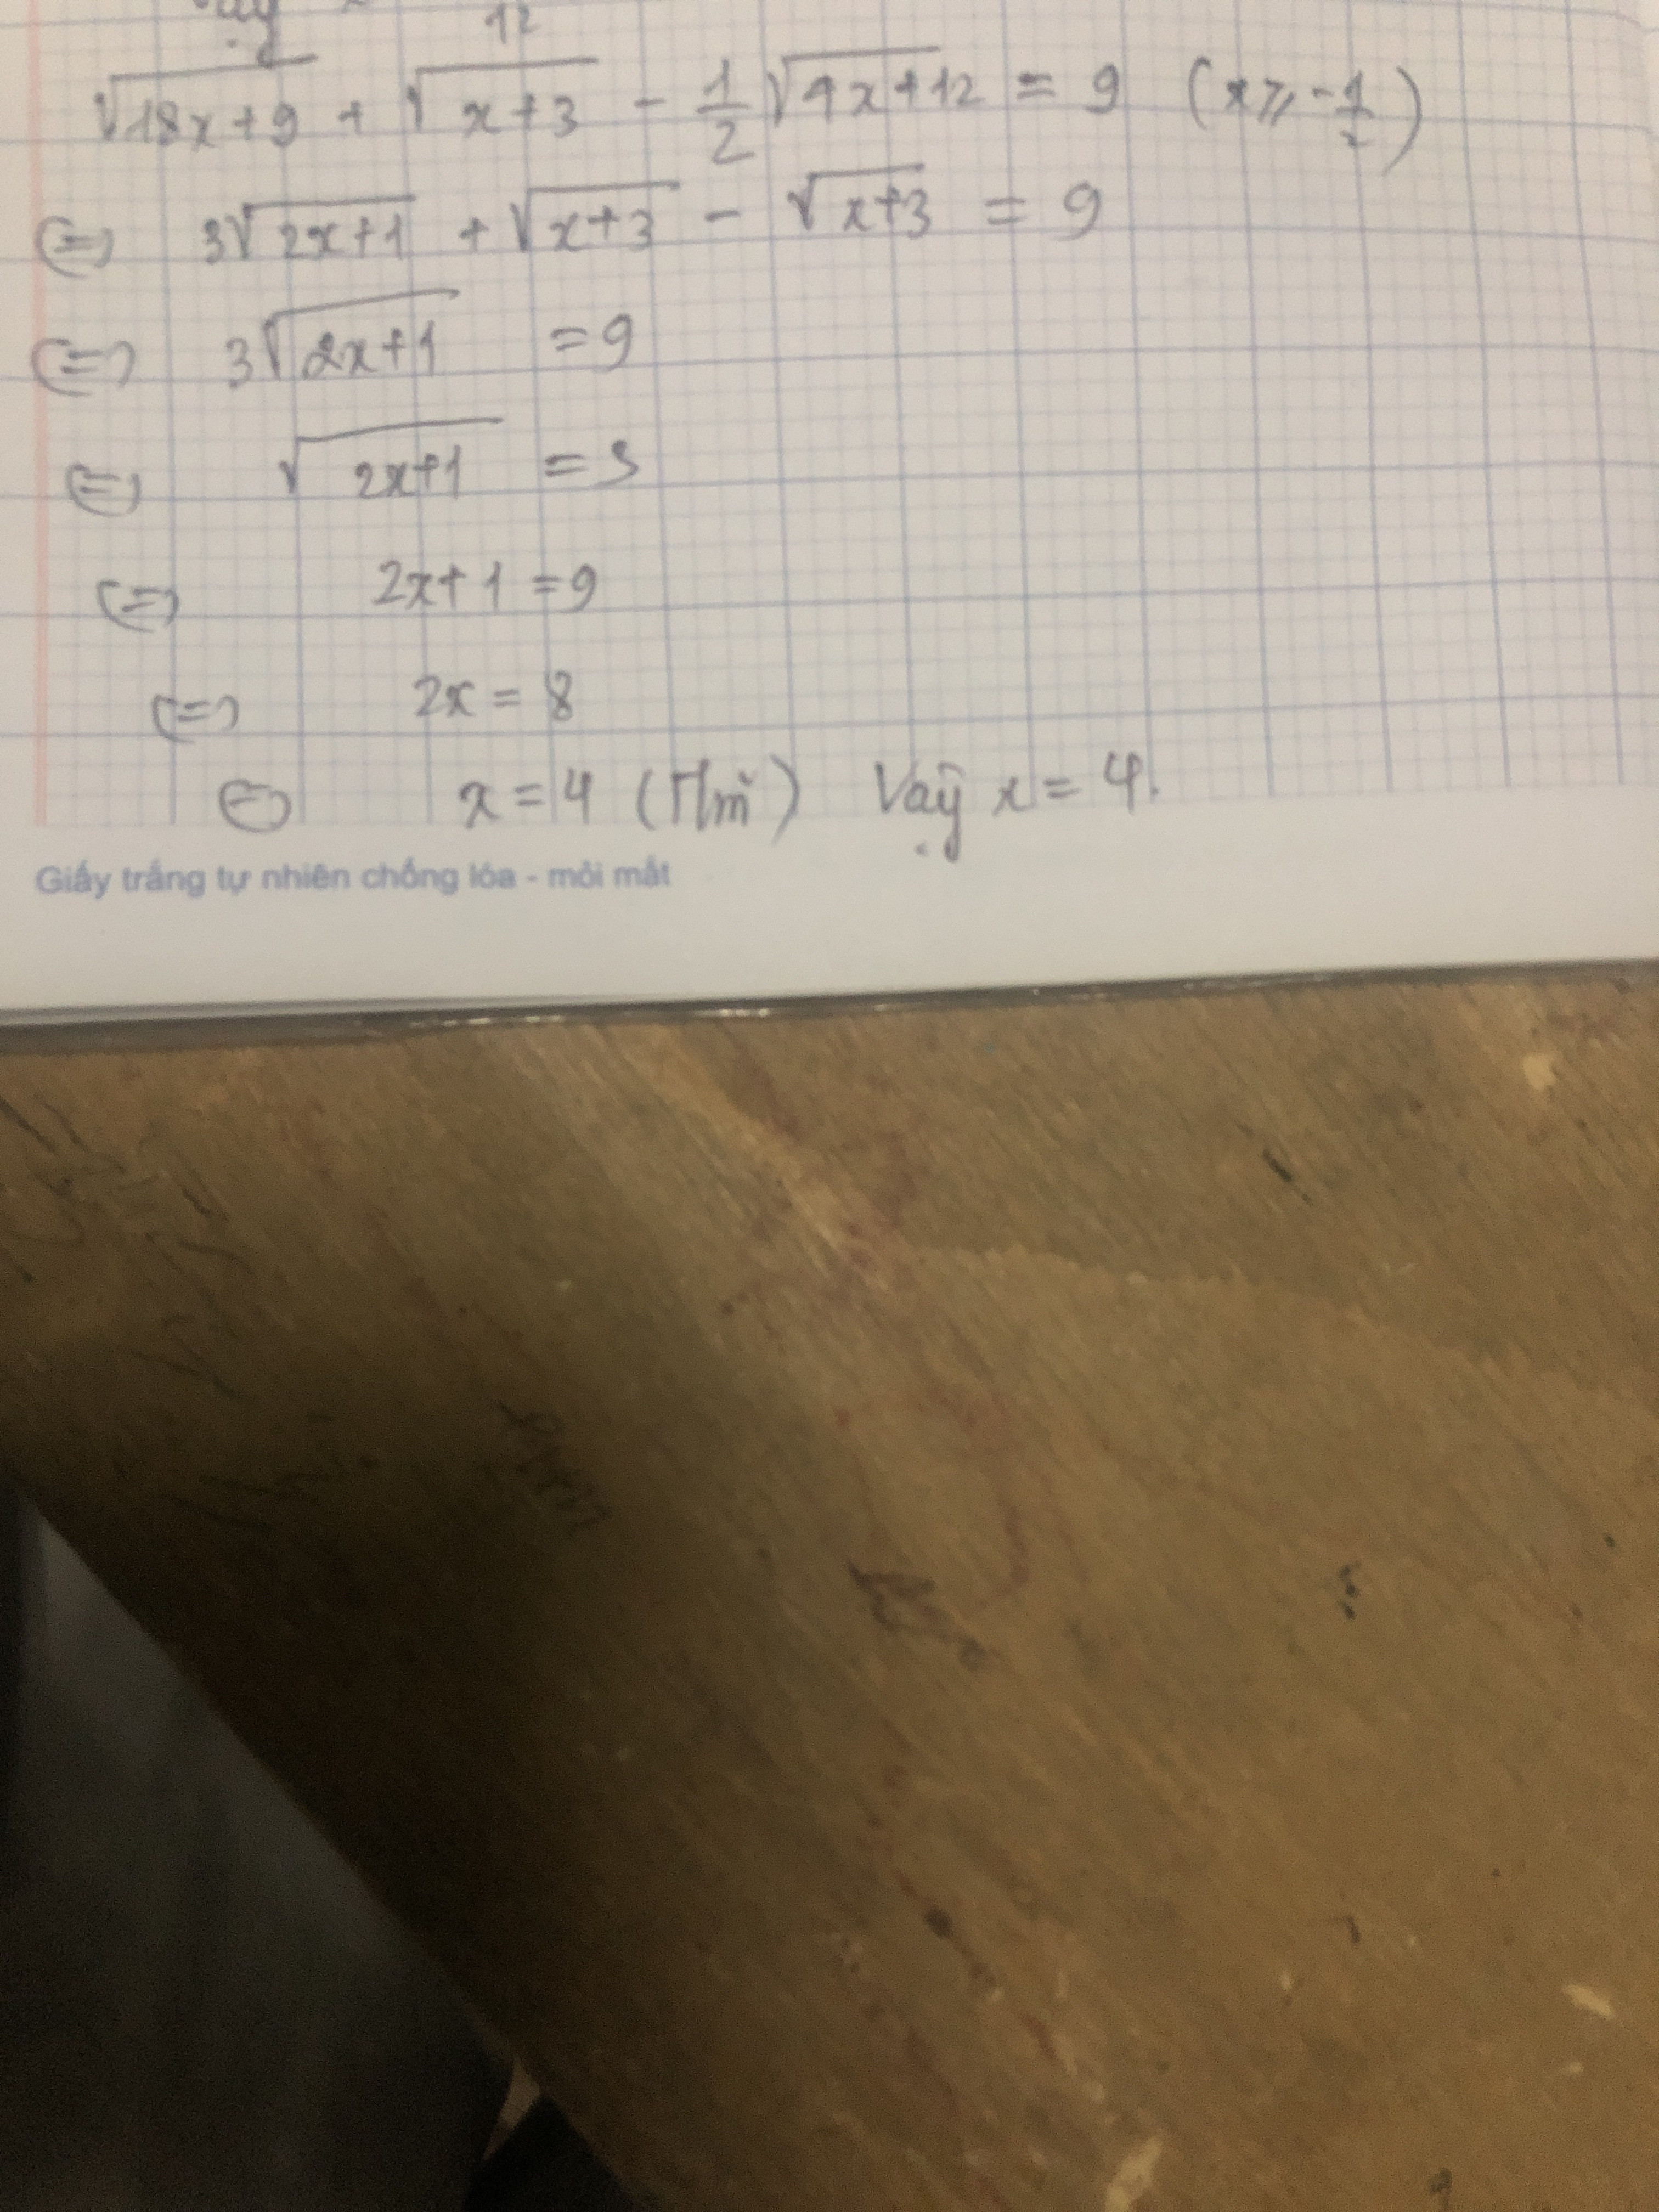 12
√18x+9 + √x+3 - 1/2 √4x+12 = 9 (x ⩾ -1/2)
(=) 3√2x+1 + √x+3 - √x+3 = 9
(=) 3√2x+1 = 9
(=) √2x+1 = 3
(=) 2x+1 = 9
(=) 2x = 8
(=) x = 4 (Tm) Vậy x = 4.
Giấy trắng tự nhiên chống lóa - mỏi mắt